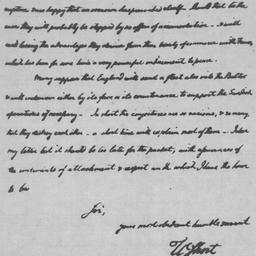 rupture was happily an occasion
they will probably be stopped by an offer of accommodation. It will
cost losing the advantages they derive from their treaty of commerce with France,
which has been for sometime a very powerful inducement to peace.
Many suppose that England will send a fleet also into the Baltic
& will endeavour either by its force or its countenance to support the Swedish
operations if necessary. In short the conjectures are so various, & so many,
that they destroy each other. a short time will explain most of them. I close
my letter lest it should be too late for the packet, with assurances of
the sentiments of attachment & respect with which I have the honor
to be
Sir,
your most obedient humble servant
W Short